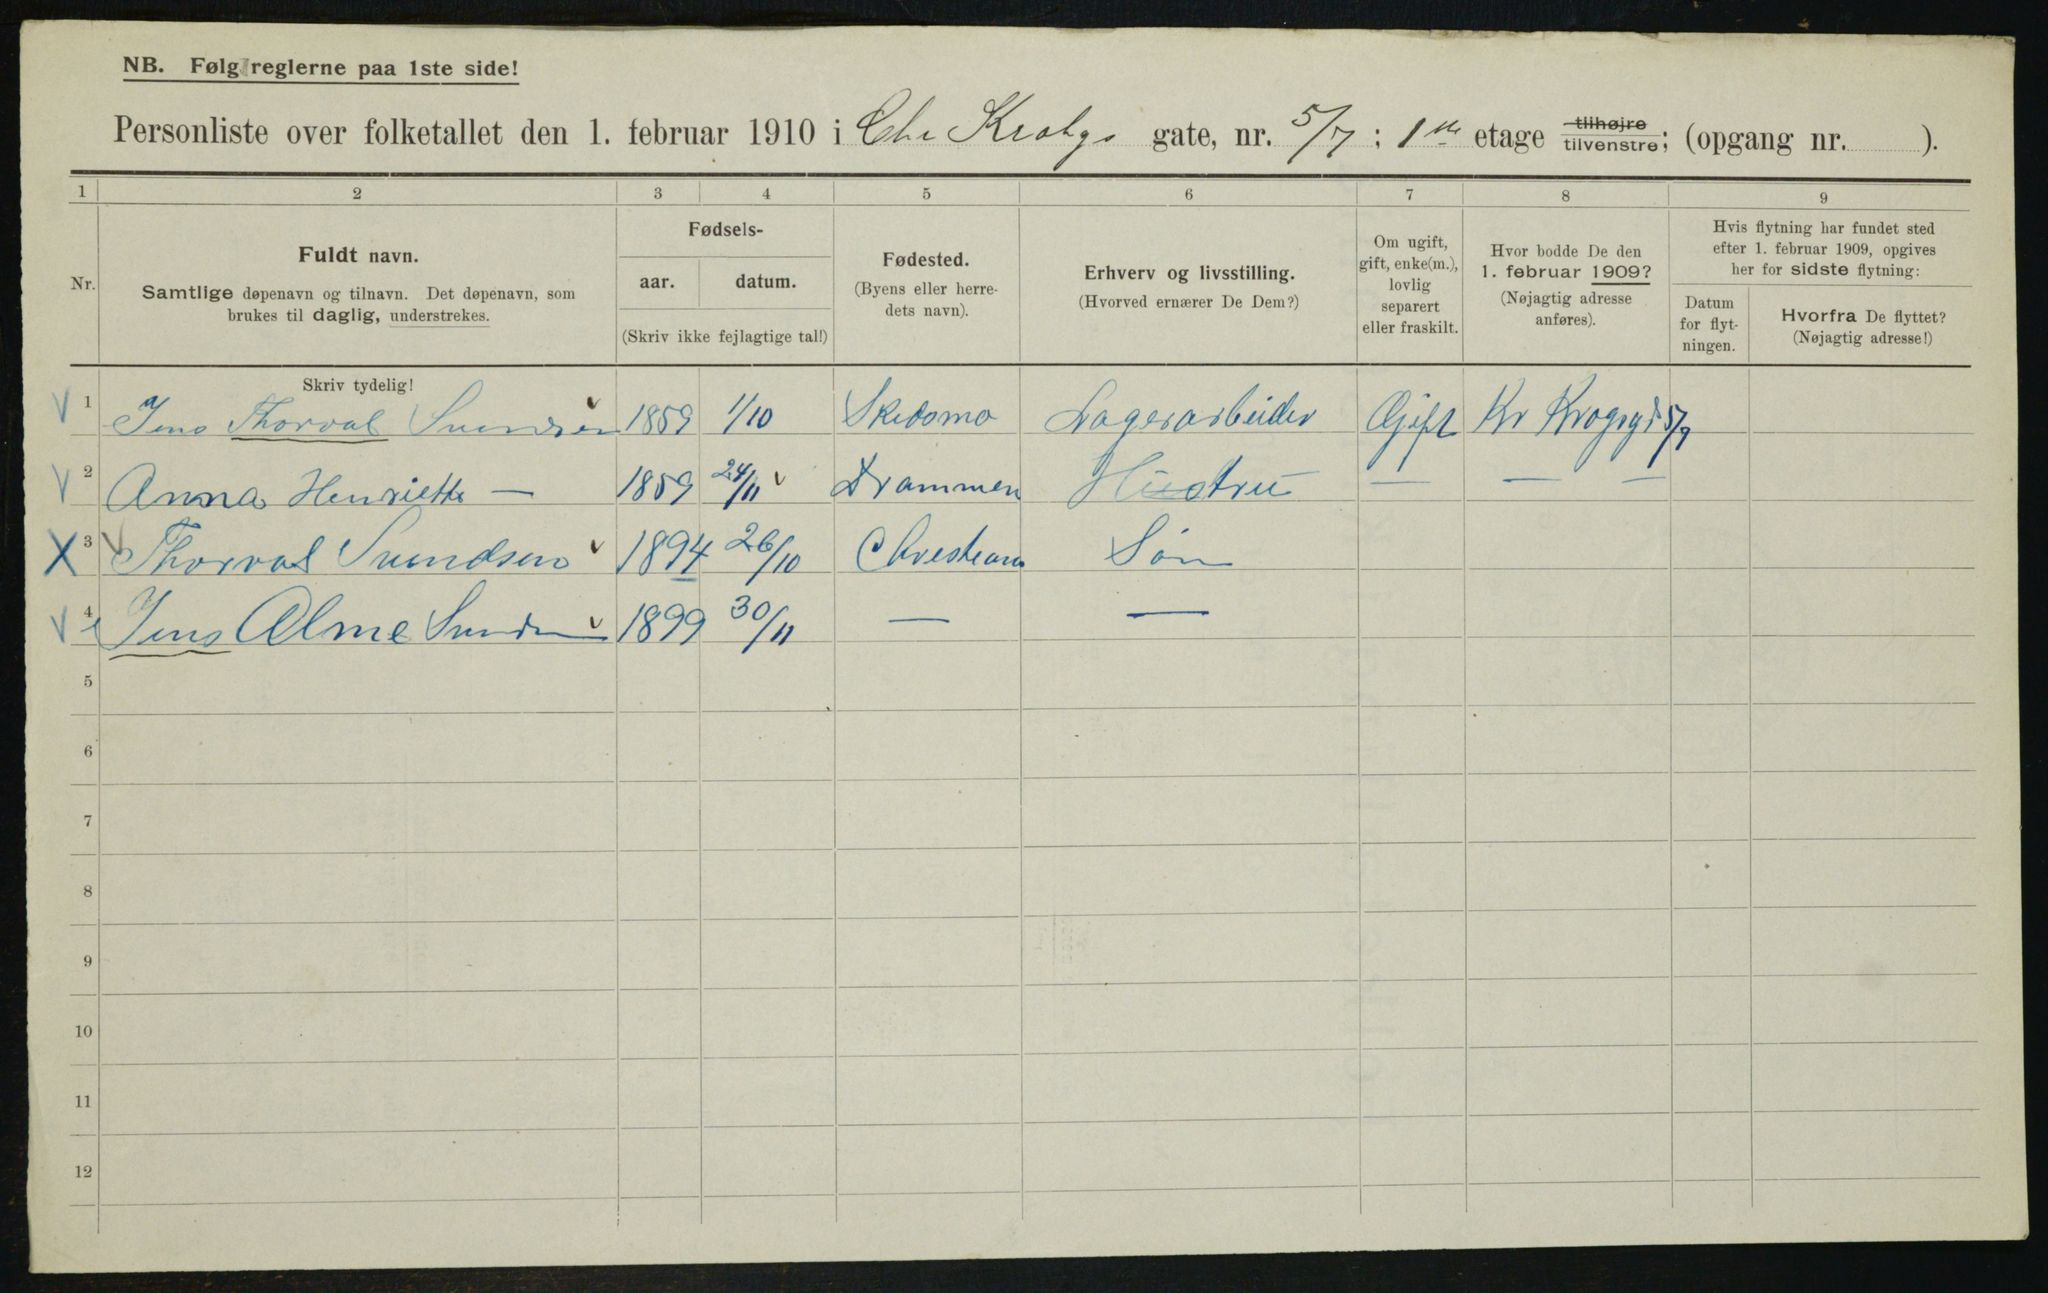 NB. Følg reglerne paa 1ste side!
Personliste over folketallet den 1. februar 1910 i Chr Krohgs gate, nr. 5/7 ; 1ste etage tilhøjre tilvenstre; (opgang nr. ).
1 2 3 4 5 6 7 8 9
Nr.
Fuldt navn.
Samtlige døpenavn og tilnavn. Det døpenavn, som
brukes til daglig, understrekes.
Fødsels-
aar. datum.
(Skriv ikke fejlagtige tal!)
Fødested.
(Byens eller herre-
dets navn).
Erhverv og livsstilling.
(Hvorved ernærer De Dem?)
Om ugift,
gift, enke(m.),
lovlig
separert
eller fraskilt.
Hvor bodde De den
1. februar 1909?
(Nøjagtig adresse
anføres).
Hvis flytning har fundet sted
efter 1. februar 1909, opgives
her for sidste flytning:
Datum
for flyt-
ningen.
Hvorfra De flyttet?
(Nøjagtig adresse!)
Skriv tydelig!
1 Jens Thorval Svendsen 1859 1/10 Skedsmo Lagerarbeider Gift Kr Krogsgt 5/7
2 Anna Henriette — 1859 24/11 Drammen Hustru — — —
3 Thorval Svendsen 1894 26/10 Christiania Søn
4 Jens Alme Svendsen 1899 30/11 — —
5
6
7
8
9
10
11
12